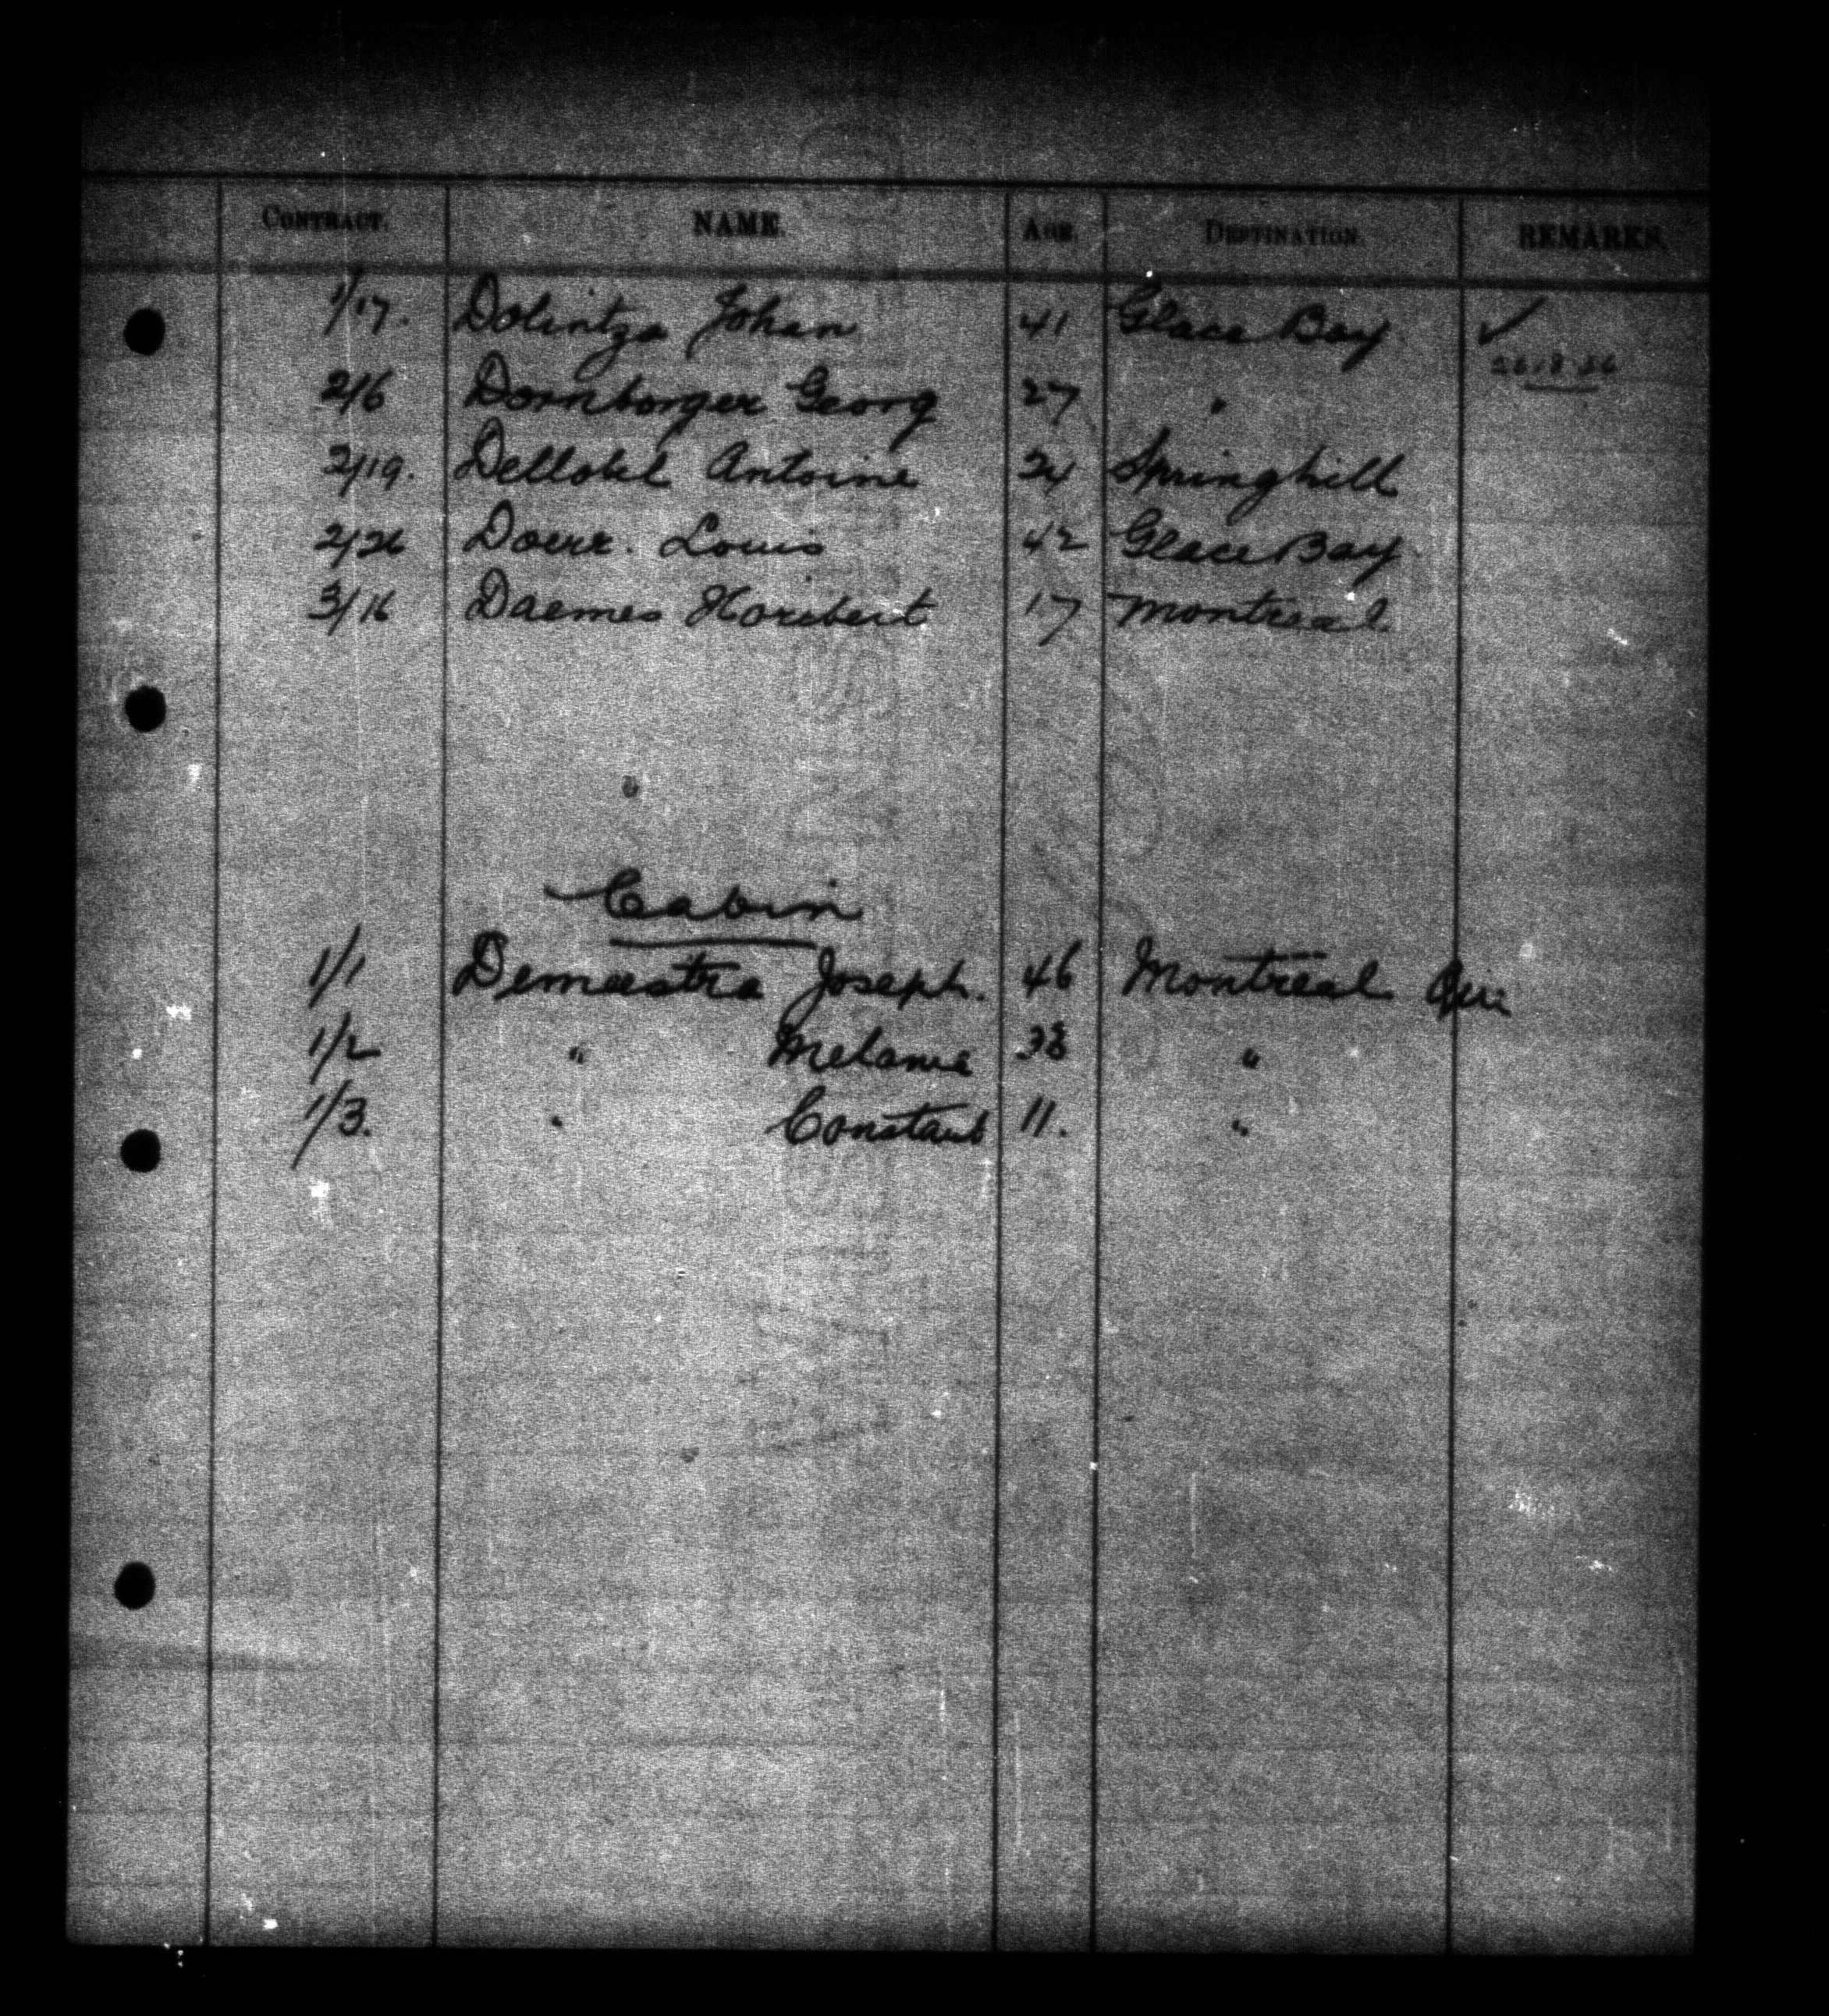 CONTRACT. NAME. AGE. DESTINATION. REMARKS.
1/17. Dolintza Johan 41 Glace Bay. ✓
2/6 Dornborger Georg 27 "
2/19. Antoine 24 Springhill
2/26 Doerr. Louis 42 Glace Bay
3/16 Daemes 17 Montreal.
Cabin
1/1 Demaestre Joseph. 46 Montreal Que
1/2 " Melanie 38 "
1/3. " Constant 11. "